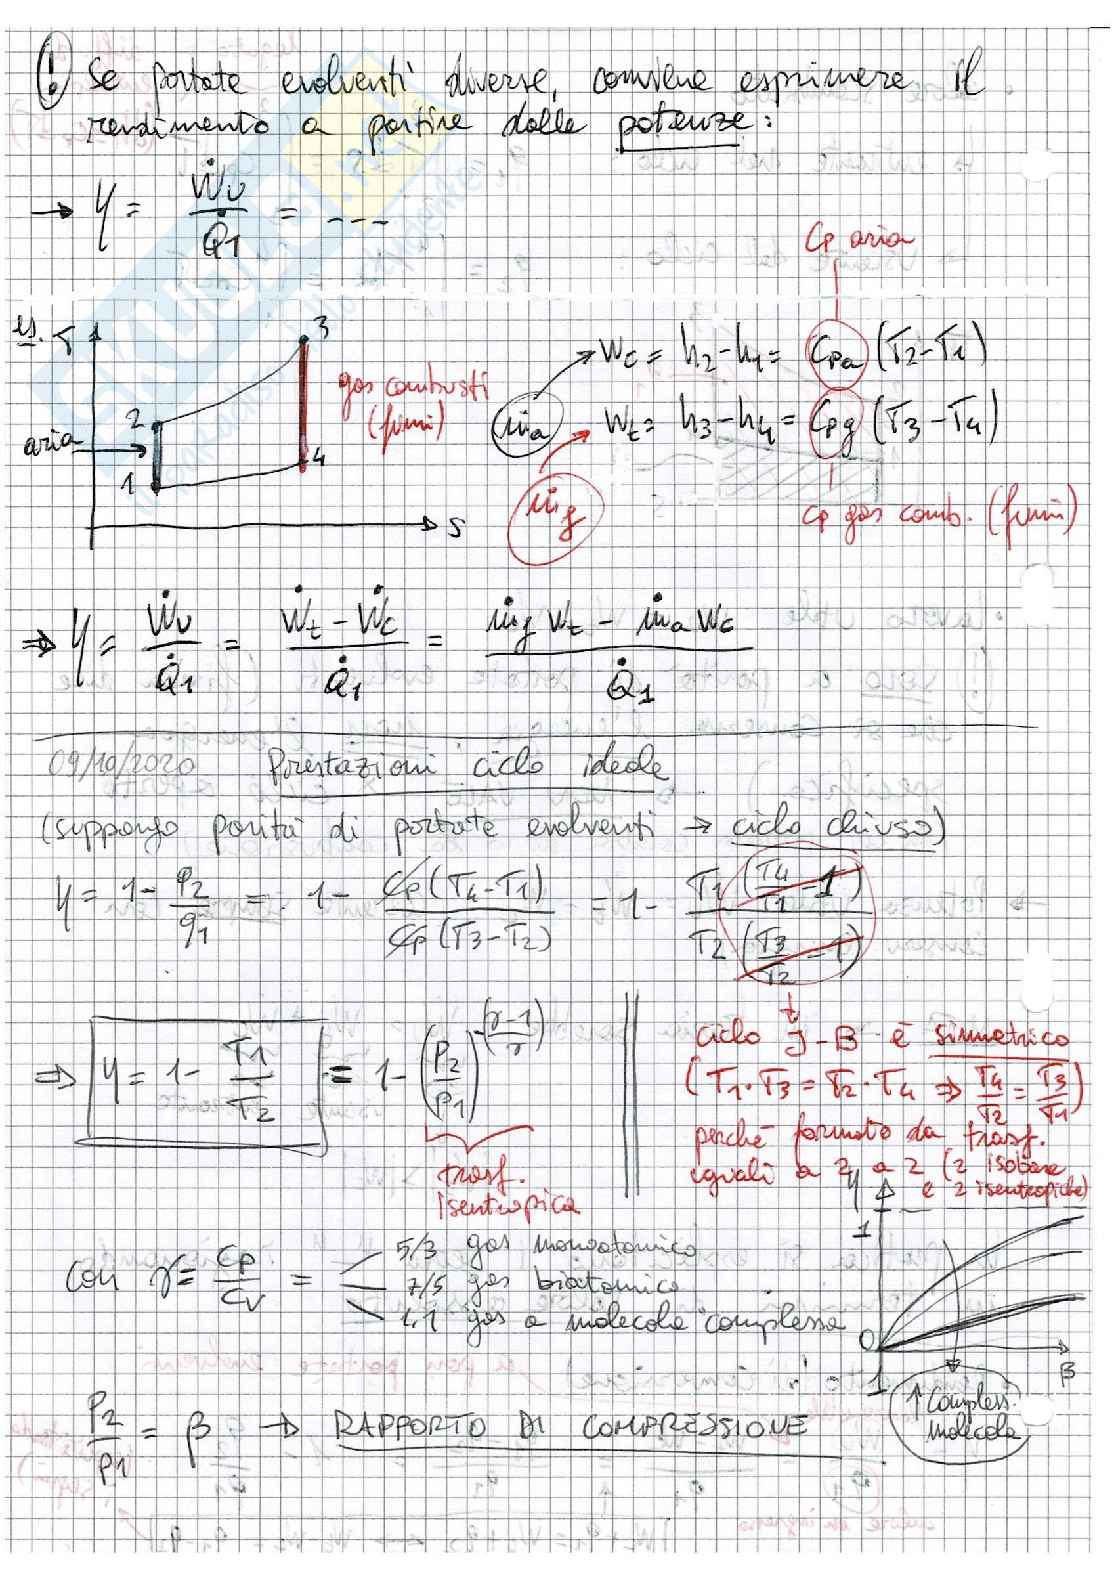 (!) Se portate evolventi diverse, conviene esprimere il
rendimento a partire dalle potenze:
→ η = Ẇu / Q̇1 = ---
Cp aria
es. T
3
2
gas combusti
(fumi)
aria
4
1
S
ṁa → wc = h2 - h1 = Cpa (T2 - T1)
ṁg → wt = h3 - h4 = Cpg (T3 - T4)
Cp gas comb. (fumi)
⇒ η = Ẇu / Q̇1 = (Ẇt - Ẇc) / Q̇1 = (ṁg wt - ṁa wc) / Q̇1
09/10/2020 Prestazioni ciclo ideale
(suppongo parità di portate evolventi → ciclo chiuso)
η = 1 - q2/q1 = 1 - Cp (T4 - T1) / Cp (T3 - T2) = 1 - T1 (T4/T1 - 1) / T2 (T3/T2 - 1)
⇒ η = 1 - T1/T2 = 1 - (P2/P1)^-(γ-1/γ)
trasf.
isentropica
ciclo J-B è simmetrico
(T1·T3 = T2·T4 ⇒ T4/T2 = T3/T1)
perché formato da trasf.
uguali a 2 a 2 (2 isobare
e 2 isentropiche)
con γ = Cp/Cv =
5/3 gas monoatomico
7/5 gas biatomico
1,1 gas a molecola complessa
η
1
0
1
β
↑ Compless.
molecola
P2/P1 = β → RAPPORTO DI COMPRESSIONE
SKUOLA.net